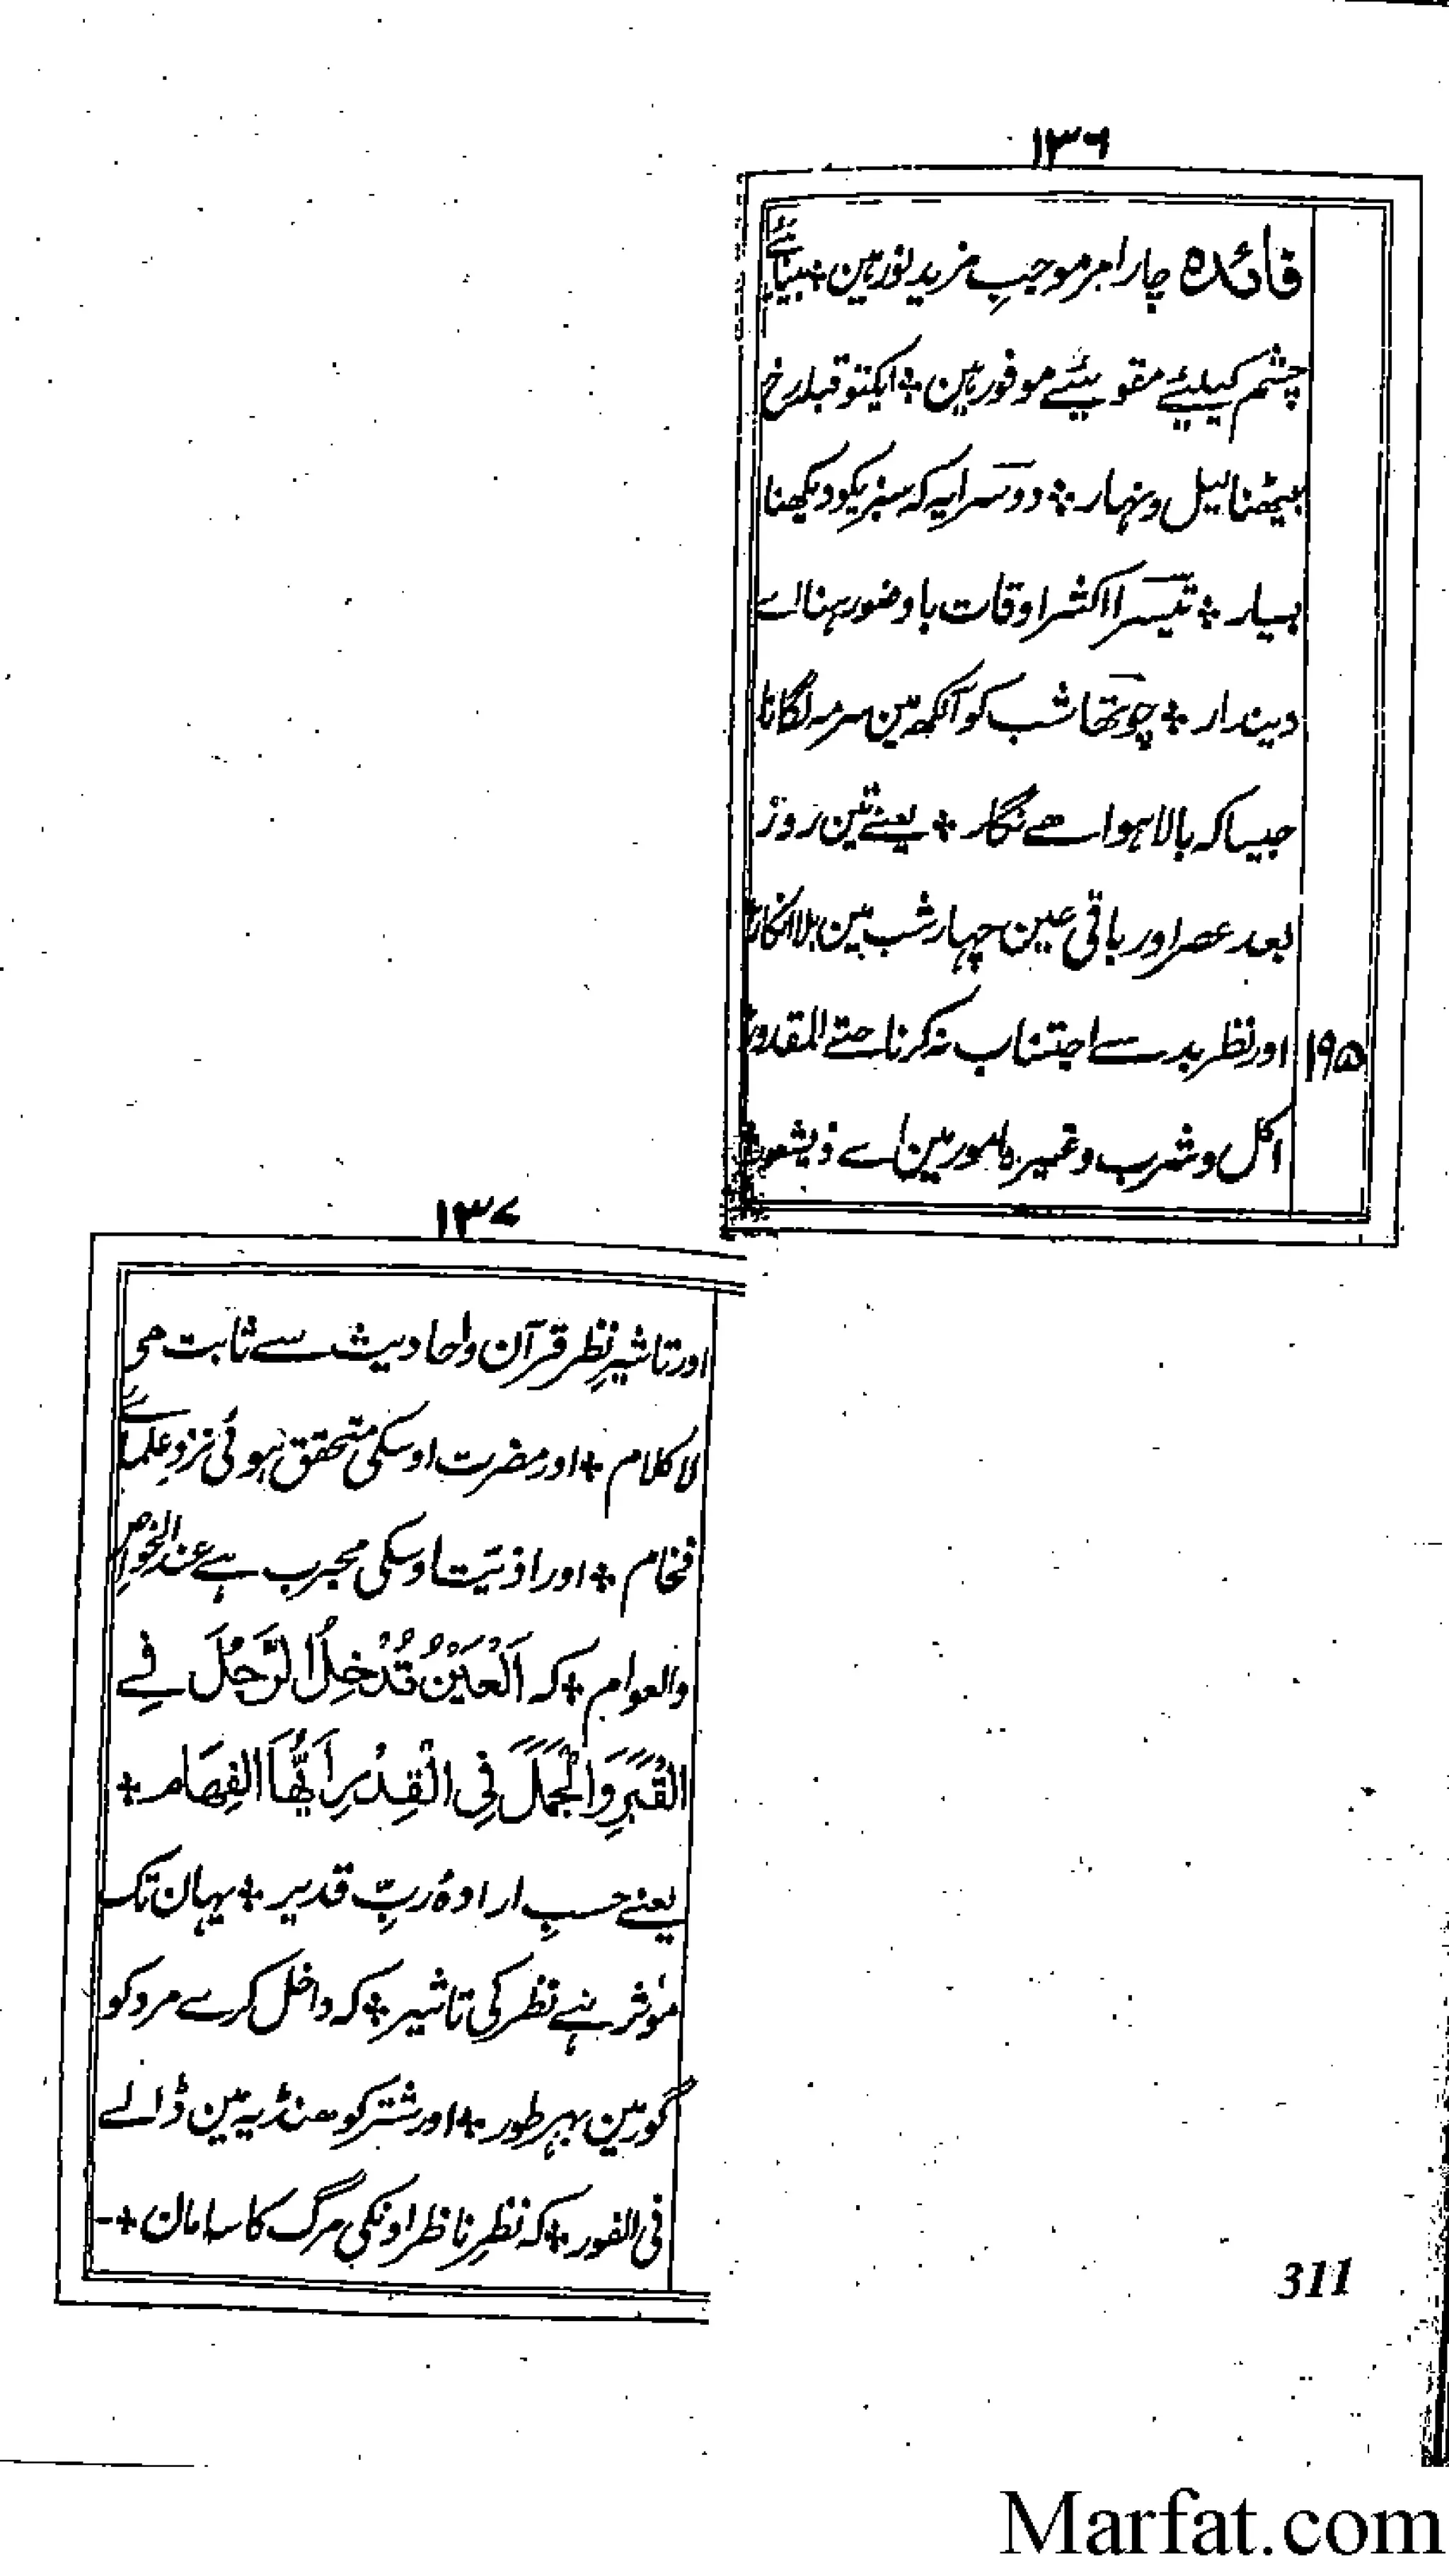 ۱۳۶
فائدہ چار امر موجبِ مزید نور ہین ÷ بینائے
چشم کیلیئے مقویئے موفور ہین ÷ ایکتو قبلہ رخ
بیٹھنا لیل و نہار ÷ دوسرا یہ کہ سبزیکو دیکھنا
بسیار ÷ تیسرا اکثر اوقات با وضو رہنا اے
دیندار ÷ چوتھا شب کو آنکھ مین سرمہ لگانا
جیسا کہ بالا ہوا ھے نگار ÷ یعنے تین روز
بعد عصر اور باقی عین چہار شب مین بلا انکار
اور نظر بد سے اجتناب نہ کرنا حتے المقدور
۱۹۵
اکل و شرب وغیرہ امور مین اے ذیشعور
۱۳۷
اور تاثیرِ نظر قرآن و احادیث سے ثابت ھی
لا کلام ÷ اور مضرت اوسکی متحقق ہوئی نزدِ علمائے
فخام ÷ اور اذیت اوسکی مجرب ہے عند الخواص
والعوام ÷ کہ اَلْعَیْنُ تُدْخِلُ الرَّجُلَ فِے
القَبْرِ وَالْجَمَلَ فِی الْقِدْرِ اَیُّهَا الفِهَام ÷
یعنے حسبِ ارادۂ ربِّ قدیر ÷ یہان تک
مؤثر ہے نظر کی تاثیر ÷ کہ داخل کرے مرد کو
گور مین بہر طور ÷ اور شتر کو ھنڈیہ مین ڈالے
فی الفور ÷ کہ نظرِ ناظر اونکی مرگ کا سامان ÷
311
Marfat.com